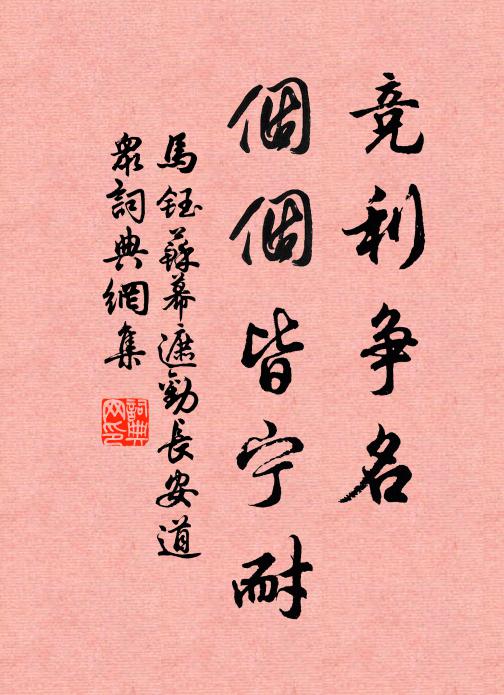 竞利争名
個個皆宁耐
馬鈺蘇幕遮勸長安道
衆詞典網集
詞典网印